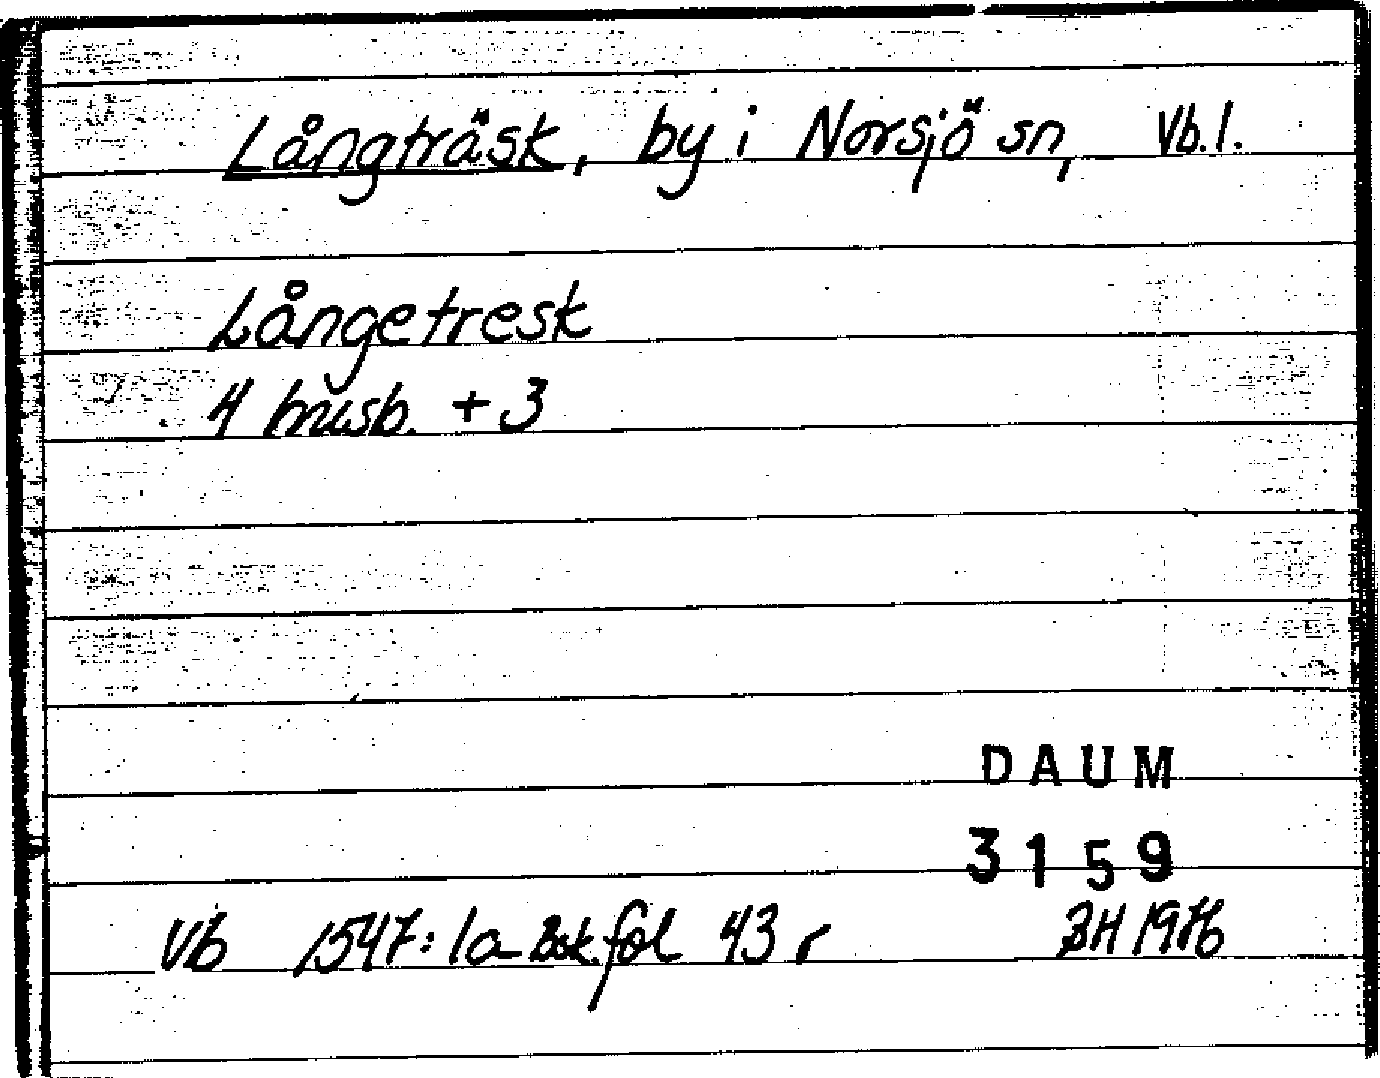 Långträsk, by i Norsjö sn, Vb.l.
Långetresk
4 husb. + 3
DAUM
3159
Vb 1547:1a Bsk. fol 43 r BH 1976